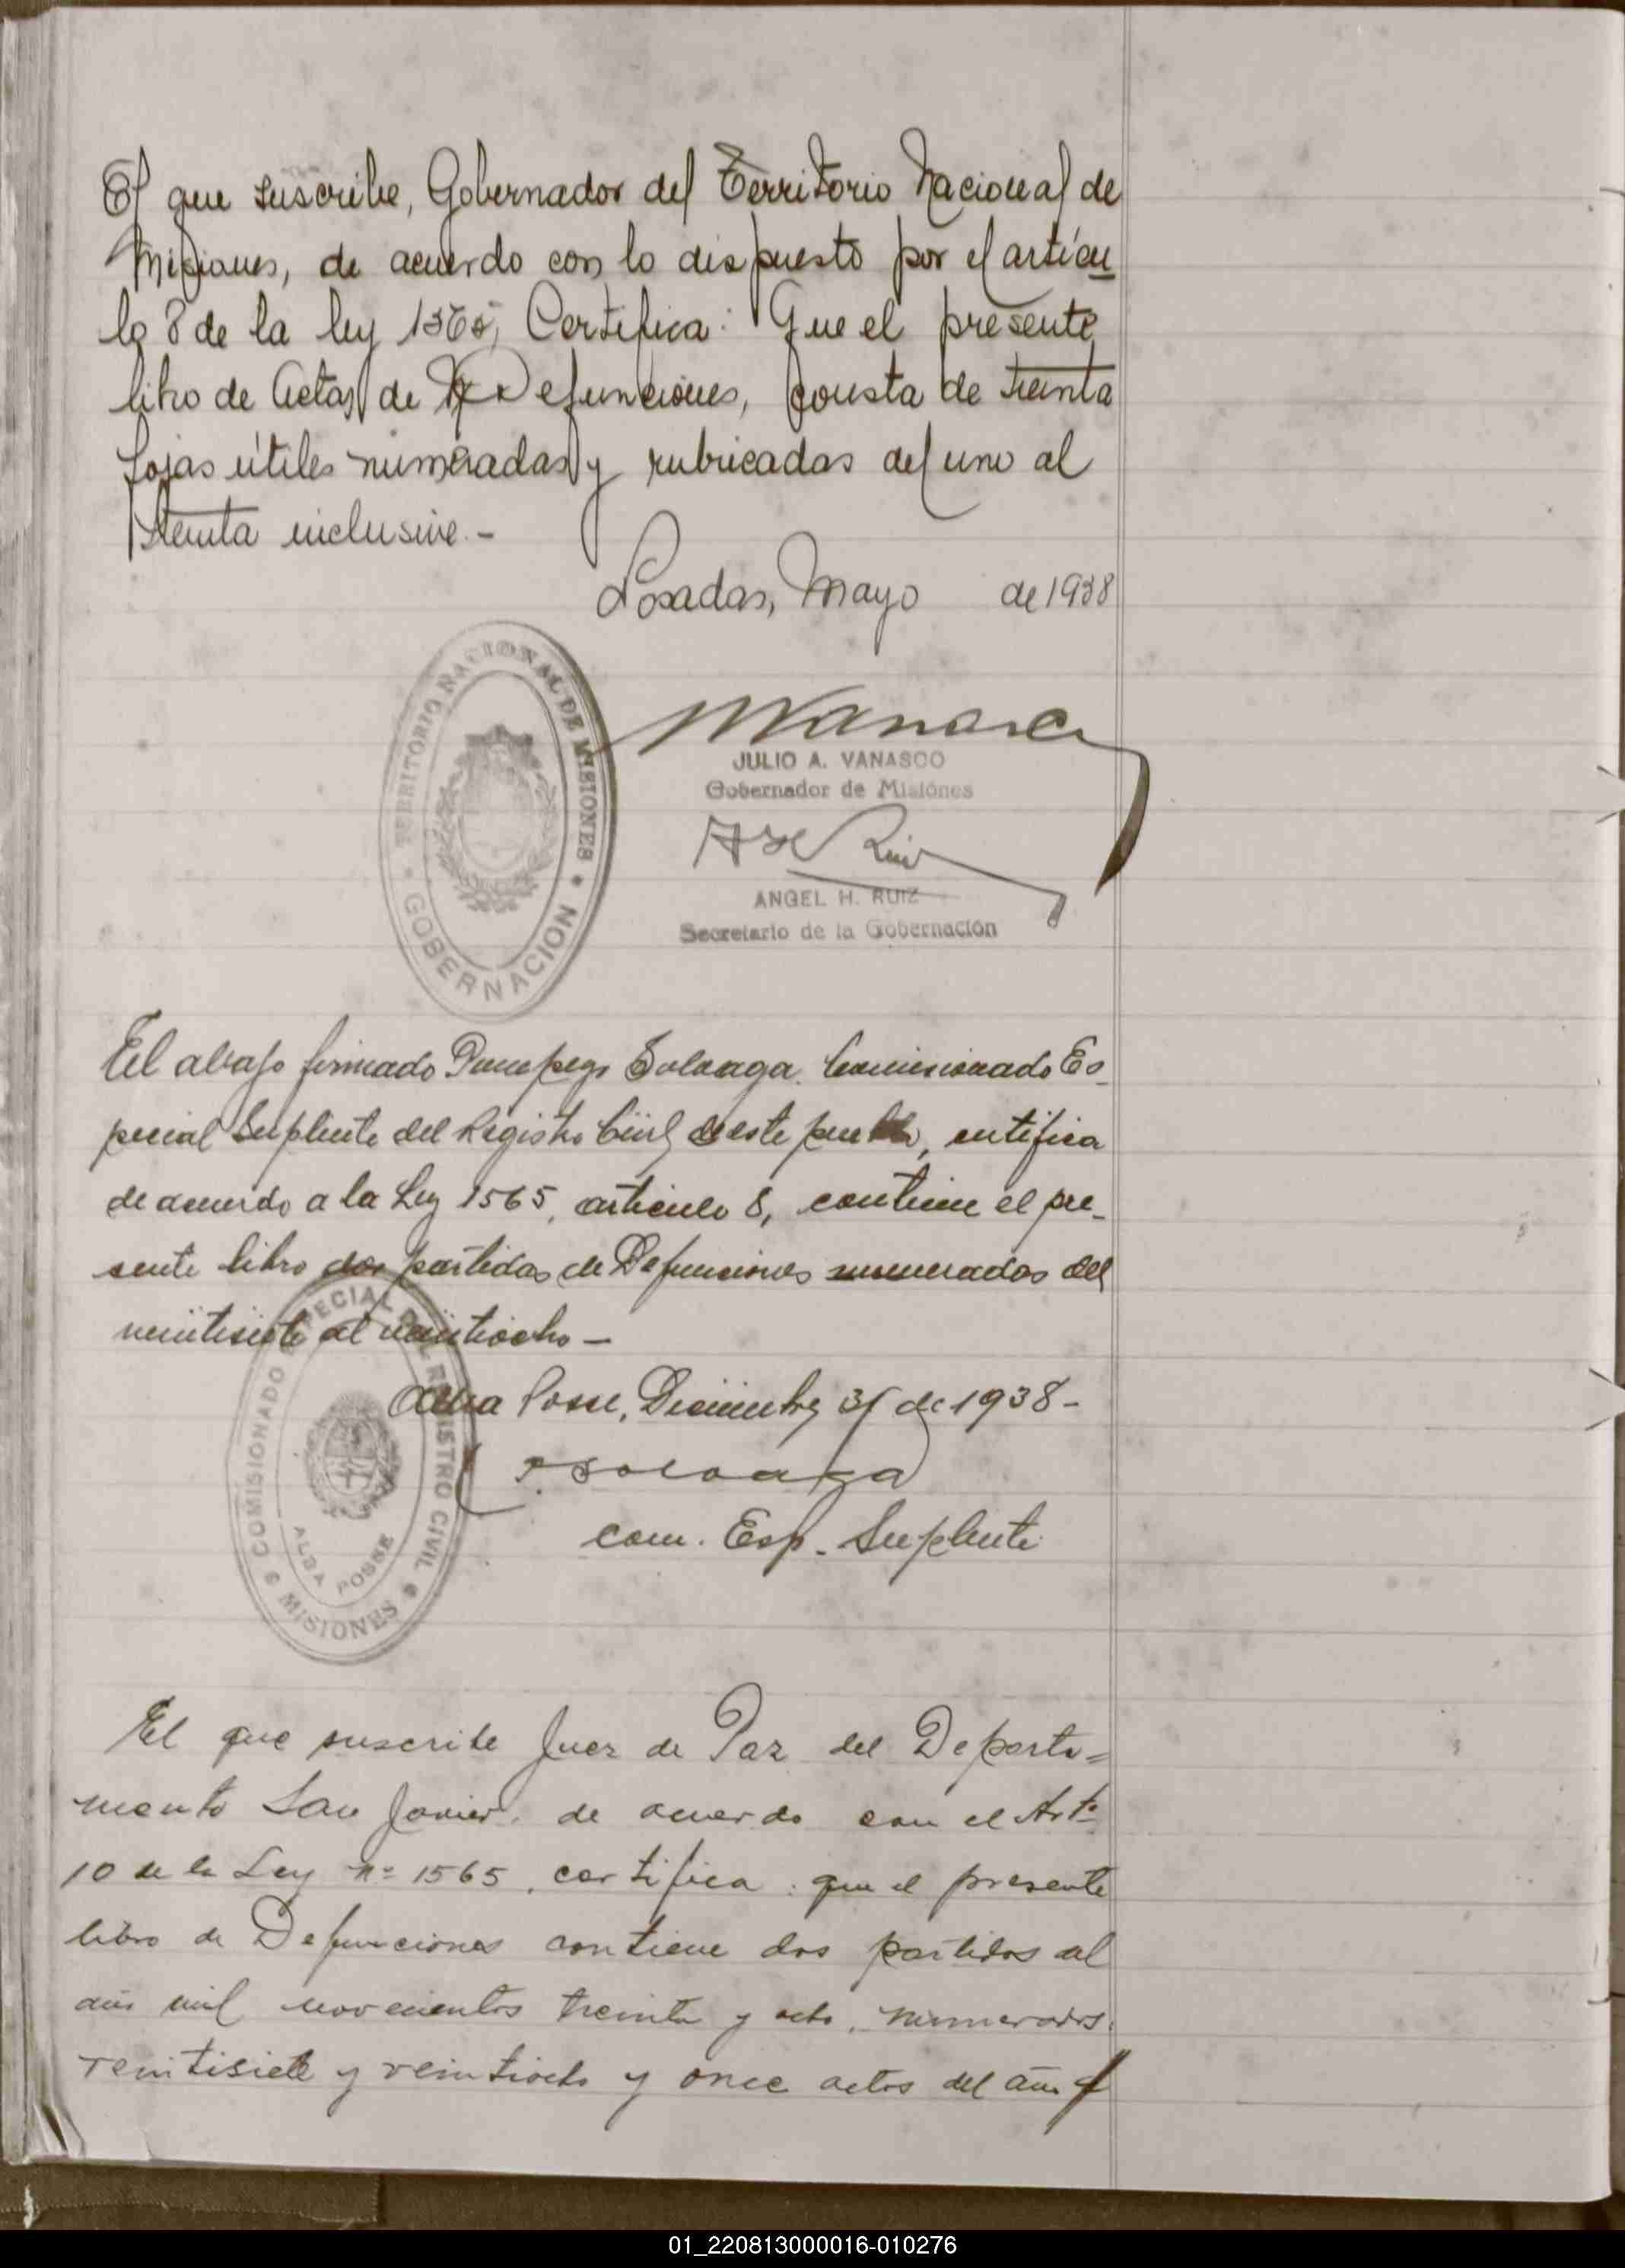 El que suscribe, Gobernador del Territorio Nacional de
Misiones, de acuerdo con lo dispuesto por el artícu
lo 8 de la ley 1565, Certifica: Que el presente
libro de Actas de Defunciones, consta de treinta
fojas útiles numeradas y rubricadas del uno al
treinta inclusive.-
Posadas, Mayo de 1938
TERRITORIO NACIONAL DE MISIONES
GOBERNACION
JULIO A. VANASCO
Gobernador de Misiónes
ANGEL H. RUIZ
Secretario de la Gobernación
El abajo firmado Pompeyo Soloaga. Comisionado Es-
pecial Suplente del Registro Civil de este pueblo, certifica
de acuerdo a la Ley 1565, articulo 8, contiene el pre-
sente libro dos partidas de Defunciones numeradas del
veintisiete al veintiocho-
Alba Posse, Diciembre 31 de 1938-
P. Soloaga
com. Esp. Suplente
COMISIONADO ESPECIAL DEL REGISTRO CIVIL
ALBA POSSE
MISIONES
El que suscribe Juez de Paz del Departa=
mento San Javier, de acuerdo con el Artº
10 de la Ley nº 1565, certifica: que el presente
libro de Defunciones contiene dos partidas del
año mil novecientos treinta y ocho, numerados
veintisiete y veintiocho y once actas del año
01_220813000016-010276